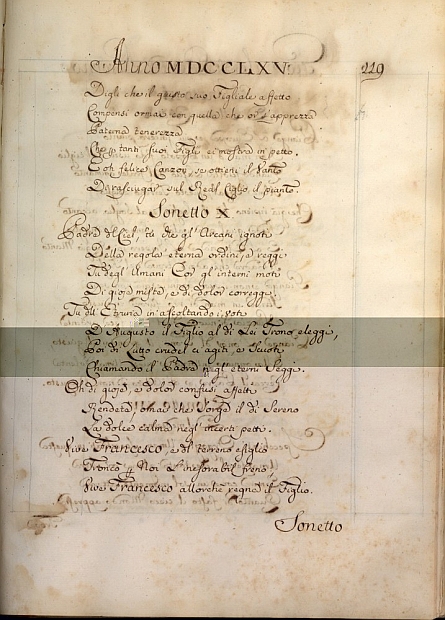 Anno MDCCLXV.
119
Digli che il giusto suo Figliale affetto
Compensi ormai con quella che or s'apprezza
Paterna tenerezza
Che tanti suoi Figli ei mostra in petto.
E oh felice Canzon, se ottieni il Vanto
D'Asciugar sul Real Ciglio il pianto.
Sonetto X
Padre del Ciel, tu che gl'Arcani ignoti
Della regola eterna ordini, e reggi
Tu degl'Umani Cor gl'interni moti
Di gioja mista, e di dolor correggi.
Tu dell'Etruria in ascoltando i voti
D'Augusto il Figlio al di Lei Trono eleggi,
Poi di Lutto crudel ci agiti, e Scuoti
Chiamando il Padre negl'eterni Seggi.
Oh di gioja, e dolor confusi affetti
Rendete omai che Sorga il dì Sereno
La dolce calma negl'incerti petti.
Vive Francesco, e dal terreno esiglio
Troncò Noi L'inesorabil freno,
Vive Francesco allorchè regna il Figlio.
Sonetto